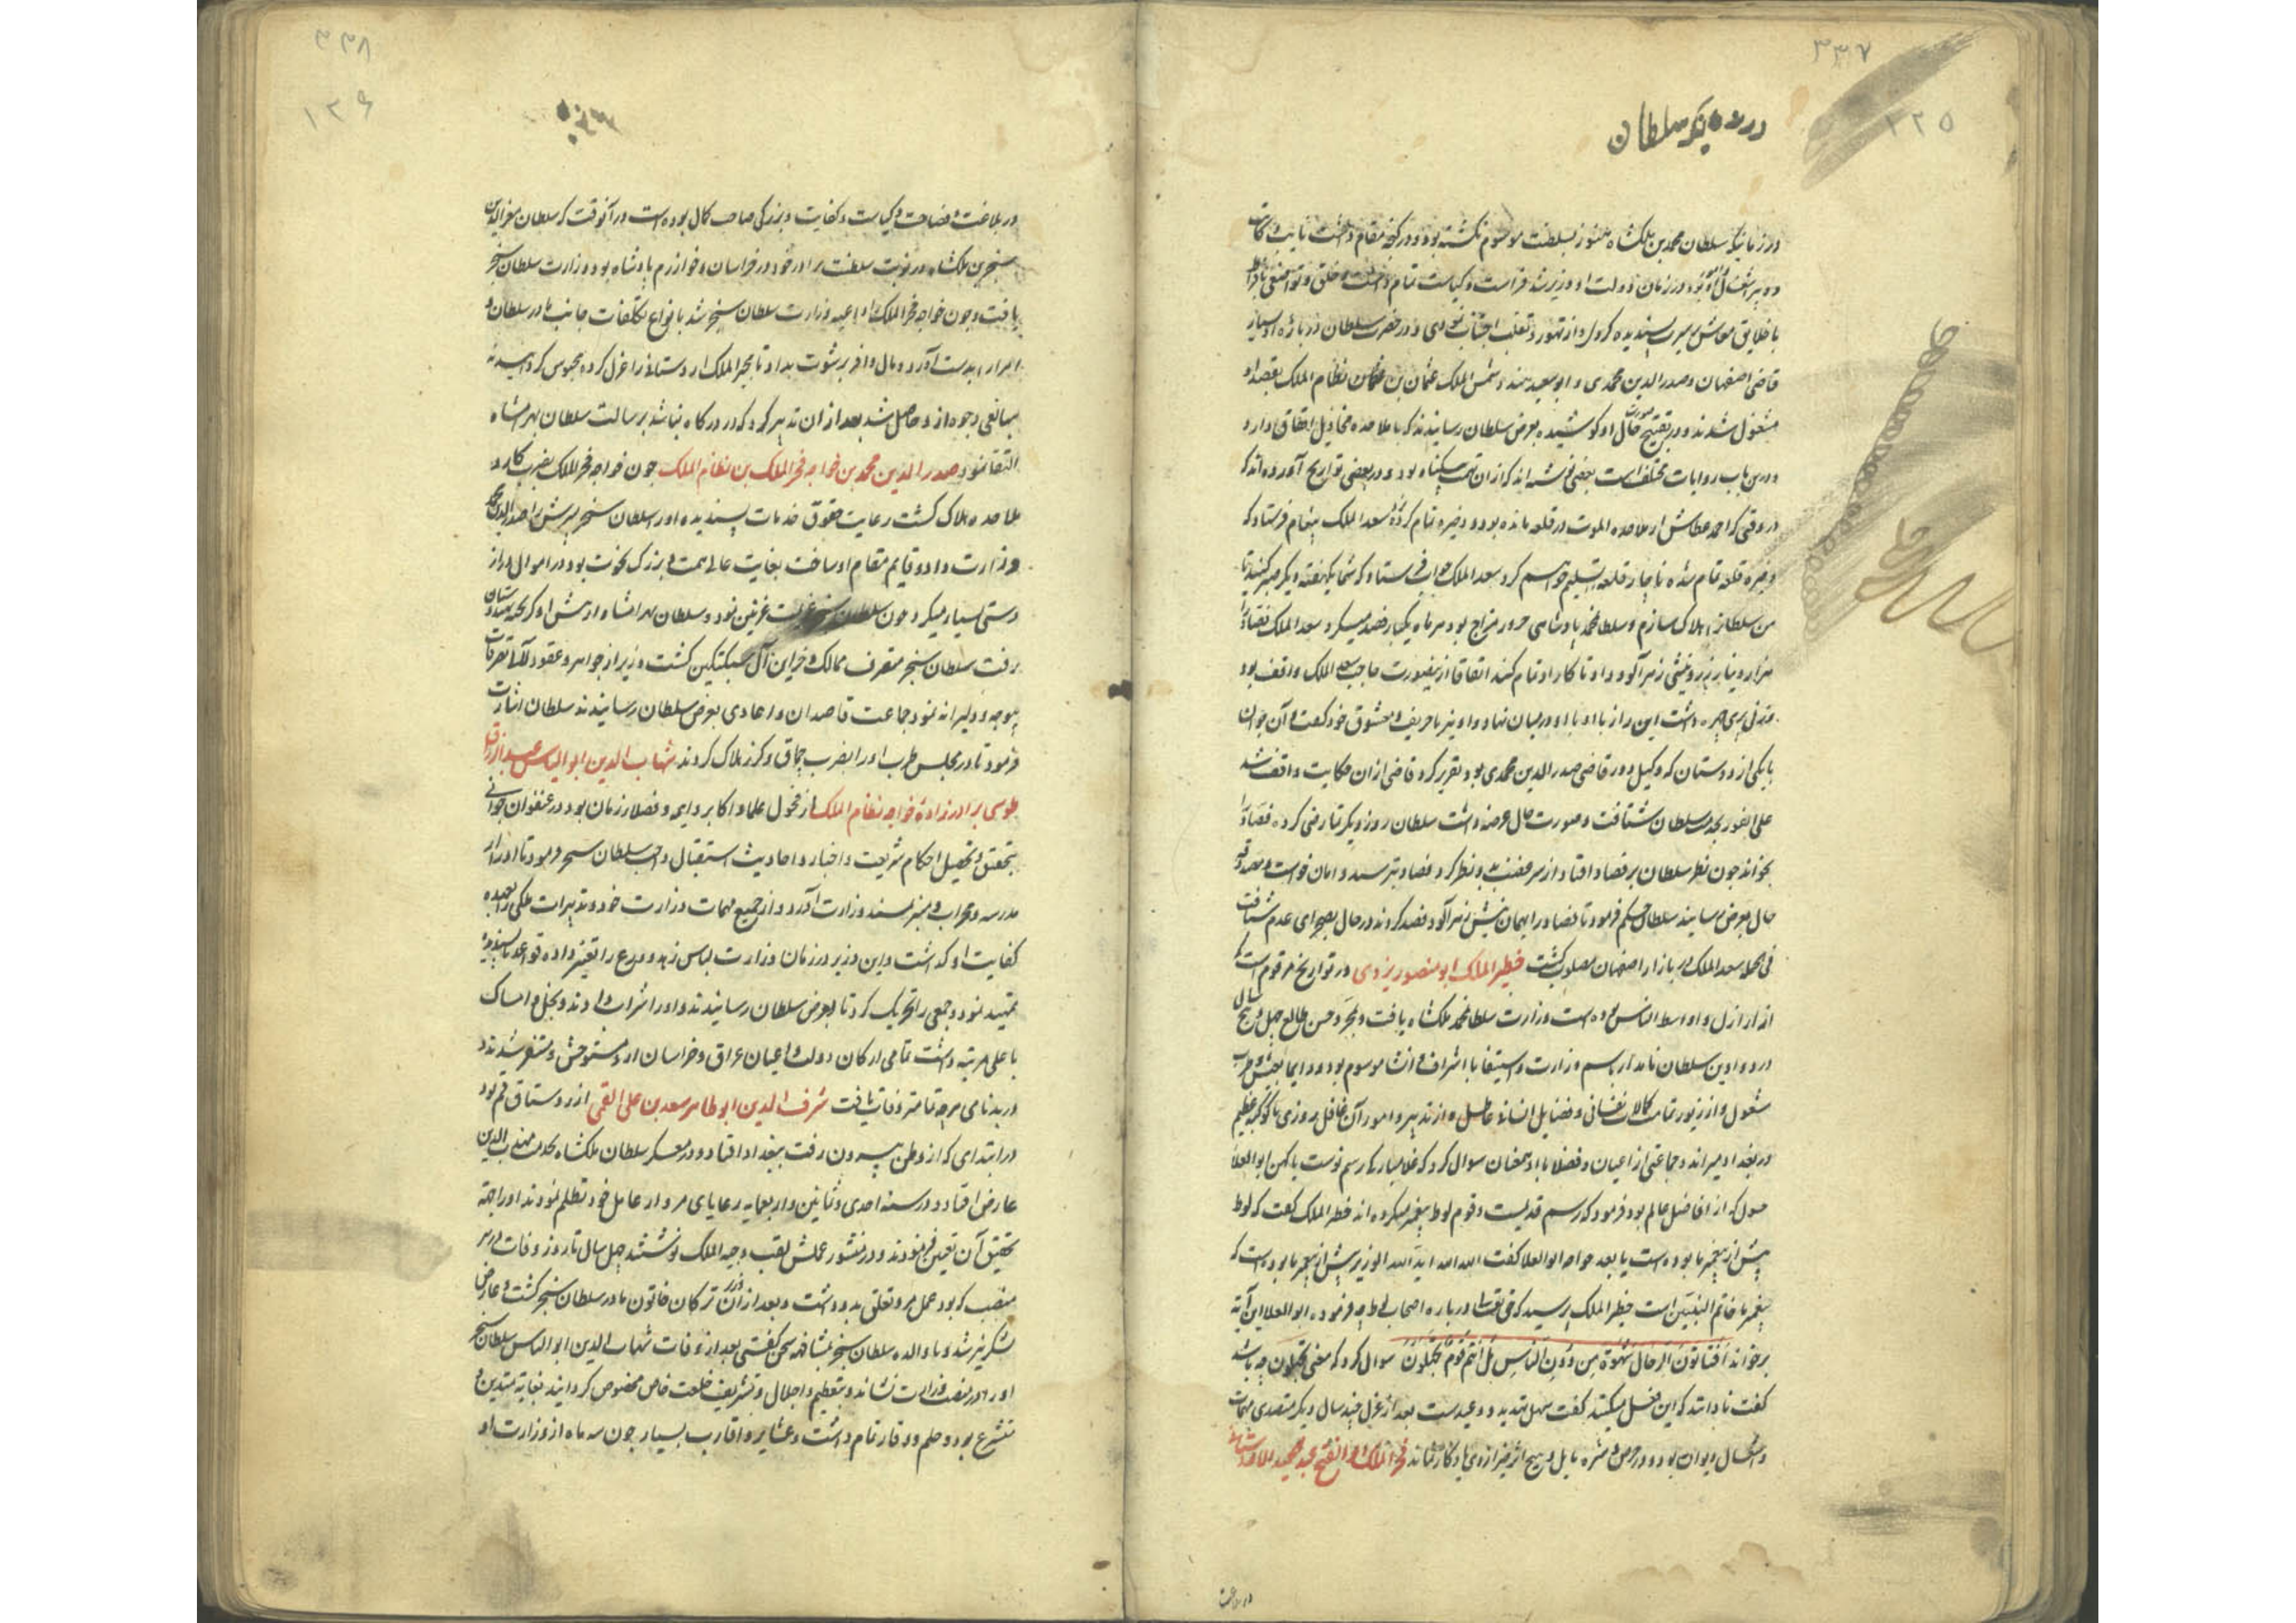 ۳۳۷
۱۲۵
سلطان
در زمانیکه سلطان محمد بن ملکشاه هنوز بسلطنت موسوم نکشته بود و در کنجه مقام داشت نایب و کاتب
و در زمان دولت او وزیر شد فراست و کیاست تمام داشت و خلق و تواضعی بافراط
با خلایق معاش بسیرت پسندیده کردی و از تهور و تغلب اجتناب نمودی و در حضرت سلطان در باره او بسیار
قاضی اصفهان و صدر الدین محمدی و ابو سعید هند و شمس الملک عثمان بن نظام الملک بقصد او
مشغول شدند و در تقبیح صورت حال او کوشیده بعرض سلطان رسانیدند که با ملاحده مخاذیل اتفاق دارد
و درین باب روایات مختلف است بعضی نوشته اند که ازان تهمت بیکناه بود و در بعضی تواریخ آورده اند که
در وقتی که احمد عطاش از ملاحده الموت در قلعه مانده بود و ذخیره تمام کرده سعد الملک پیغام فرستاد که
ذخیره قلعه تمام شده ناچار قلعه تسلیم خواهم کرد سعد الملک جواب فرستاد که شما یکهفته دیکر صبر کنید تا
من سلطانرا هلاک سازم و سلطان محمد پادشاهی محرور مزاج بود هر ماه یکبار فصد میکرد سعد الملک فصاد را
هزار دینار زر و نیشی زهر آلود داد تا کار او تمام کند اتفاقا ازینصورت حاجب سعد الملک واقف بود
و زنی پری چهره داشت این راز با او در میان نهاد و او نیز با حریف و معشوق خود کفت و آن جوان
با یکی از دوستان که وکیل در قاضی صدر الدین محمدی بود تقریر کرد قاضی ازان حکایت واقف شد
علی الفور بخدمت سلطان شتافت و صورت حال عرضه داشت سلطان روز دیکر تمارضی کرده فصاد را
بخواند چون نظر سلطان بر فصاد افتاد از سر غضب بدو نظر کرد فصاد بترسید و امان خواست و صدق
حال بعرض رسانید سلطان حکم فرمود تا فصاد را بهمان نیش زهر آلود فصد کردند در حال بصحرای عدم شتافت
فی الجمله سعد الملک در بازار اصفهان مصلوب کشت خطیر الملک ابو منصور یزدی در تواریخ مرقوم است که
از اراذل و اواسط الناس بوده است وزارت سلطان محمد ملکشاه یافت و بمجرد حسن طالع چهل و پنج سال
در دواوین سلطان نامدار باسم وزارت و استیفا یا اشراف و انشا موسوم بود و دایما بعیش و طرب
مشغول و از زیور تمامت کمالات نفسانی و فضایل انسانی عاطل و از تدبیر و امور آن غافل روزی با کوکبه عظیم
در بغداد میراند و جماعتی از اعیان و فضلا با او همعنان سوال کرد که غلامباره رسم نوست یا کهن ابو العلا
که از افاضل عالم بود فرمود که رسم قدیمست و قوم لوط پیغمبر میکرده اند خطیر الملک کفت که لوط
پیش از پیغمبر ما بوده است یا بعد خواجه ابو العلا کفت الله الله اید الله الوزیر پیش از پیغمبر ما بوده است که
پیغمبر ما خاتم النبیین است خطیر الملک پرسید که حق تعالی در باره اصحاب لوط چه فرموده ابو العلا این آیه
برخواند أَفَتَأتُونَ الرِّجَالَ شَهْوَةً مِنْ دُونِ النَّاسِ بَلْ أَنْتُمْ قَوْمٌ تَجْهَلُونَ سوال کرد که معنی تجهلون چه باشد
کفت نادانند که این فعل میکنند کفت سهل تهدید و وعیدست بعد از عزل چند سال دیکر متصدی مهمات
و اشغال دیوان بود و در حرص و شره مایل و هیچ اثر خیر ازوی یادکار نماند
۳۳۸
۱۲۶
در بلاغت و فصاحت و کیاست و کفایت و بزرکی صاحب کمال بوده است در آنوقت که سلطان معز الدین
سنجر بن ملکشاه در نوبت سلطنت برادر خود در خراسان و خوارزم پادشاه بود وزارت سلطان سنجر
یافت و چون خواجه فخر الملک را داعیه وزارت سلطان سنجر شد بانواع تکلفات جانب مادر سلطان و
امرا را بدست آورد و مال وافر برشوت بداد تا مجیر الملک اردستانی را عزل کرده محبوس کردانید
مبالغی وجوه ازو حاصل شد بعد ازان تدبیر کرد که در درکاه نباشد برسالت سلطان بهرامشاه
التقا نمود صدر الدین محمد بن خواجه فخر الملک بن نظام الملک چون خواجه فخر الملک بضرب کارد
ملاحده هلاک کشت رعایت حقوق خدمات پسندیده او را سلطان سنجر پسرش را صدر الدین محمد
وزارت داد و قایم مقام او ساخت بغایت عالی همت و بزرک نخوت بود در اموال دراز
دستی بسیار میکرد چون سلطان سنجر عزیمت غزنین نمود و سلطان بهرامشاه از پیش او کریخته بهندوستان
رفت سلطان سنجر متصرف ممالک و خزاین آل سبکتکین کشت وزیر از جواهر و عقود لآلی تصرفات
بیوجه و دلیرانه نمود جماعت قاصدان و اعادی بعرض سلطان رسانیدند سلطان اشارت
فرمود تا در مجلس طرب او را بضرب چماق و کرز هلاک کردند شهاب الدین ابو المحاسن عبد الرزاق
طوسی برادرزاده خواجه نظام الملک از فحول علما و اکابر و ایمه و فضلاء زمان بود در عنفوان جوانی
بتحقیق و تحصیل احکام شریعت و اخبار و احادیث استقبال داشت سلطان سنجر فرمود تا او را از
مدرسه و محراب و منبر بمسند وزارت آورد و از جمیع مهمات وزارت خود و تدبیرات ملکی بعهده
کفایت او کذاشت و این وزیر در زمان وزارت لباس زهد و ورع را تغییر داده قواعد ناپسندیده
تمهید نمود و جمعی را تحریک کرد تا بعرض سلطان رسانیدند و بخل و امساک
باعلی مرتبه داشت تمامی ارکان دولت و اعیان عراق و خراسان ازو مستوحش و متنفر شدند
در بدنامی هرچه تمامتر وفات یافت شرف الدین ابو طاهر سعد بن علی القمی از روستاق قم بود
در ابتدای که از وطن بیرون رفت ببغداد افتاد و در معسکر سلطان ملکشاه بخدمت مهذب الدین
عارض افتاد و در سنه احدی و ثمانین و اربعمایه رعایای مرو از عامل خود تظلم نمودند او را بجهة
تحقیق آن تعیین فرمودند و در منشور عملش لقب وجیه الملک نوشتند چهل سال تا روز وفات بر هر
منصب که بود عمل مرو تعلق بدو داشت و بعد ازان وزیر ترکان خاتون مادر سلطان سنجر کشت و عارض
لشکر نیز شد و با والده سلطان سنجر بمشافهه سخن کفتی بعد از وفات شهاب الدین ابو المحاسن سلطان سنجر
او را در منصب وزارت نشاند و بتعظیم و اجلال و تشریف خلعت خاص مخصوص کردانید بغایة متدین و
متشرع بود و حلم و وقار تمام داشت و عشایر و اقارب بسیار چون سه ماه از وزارت او